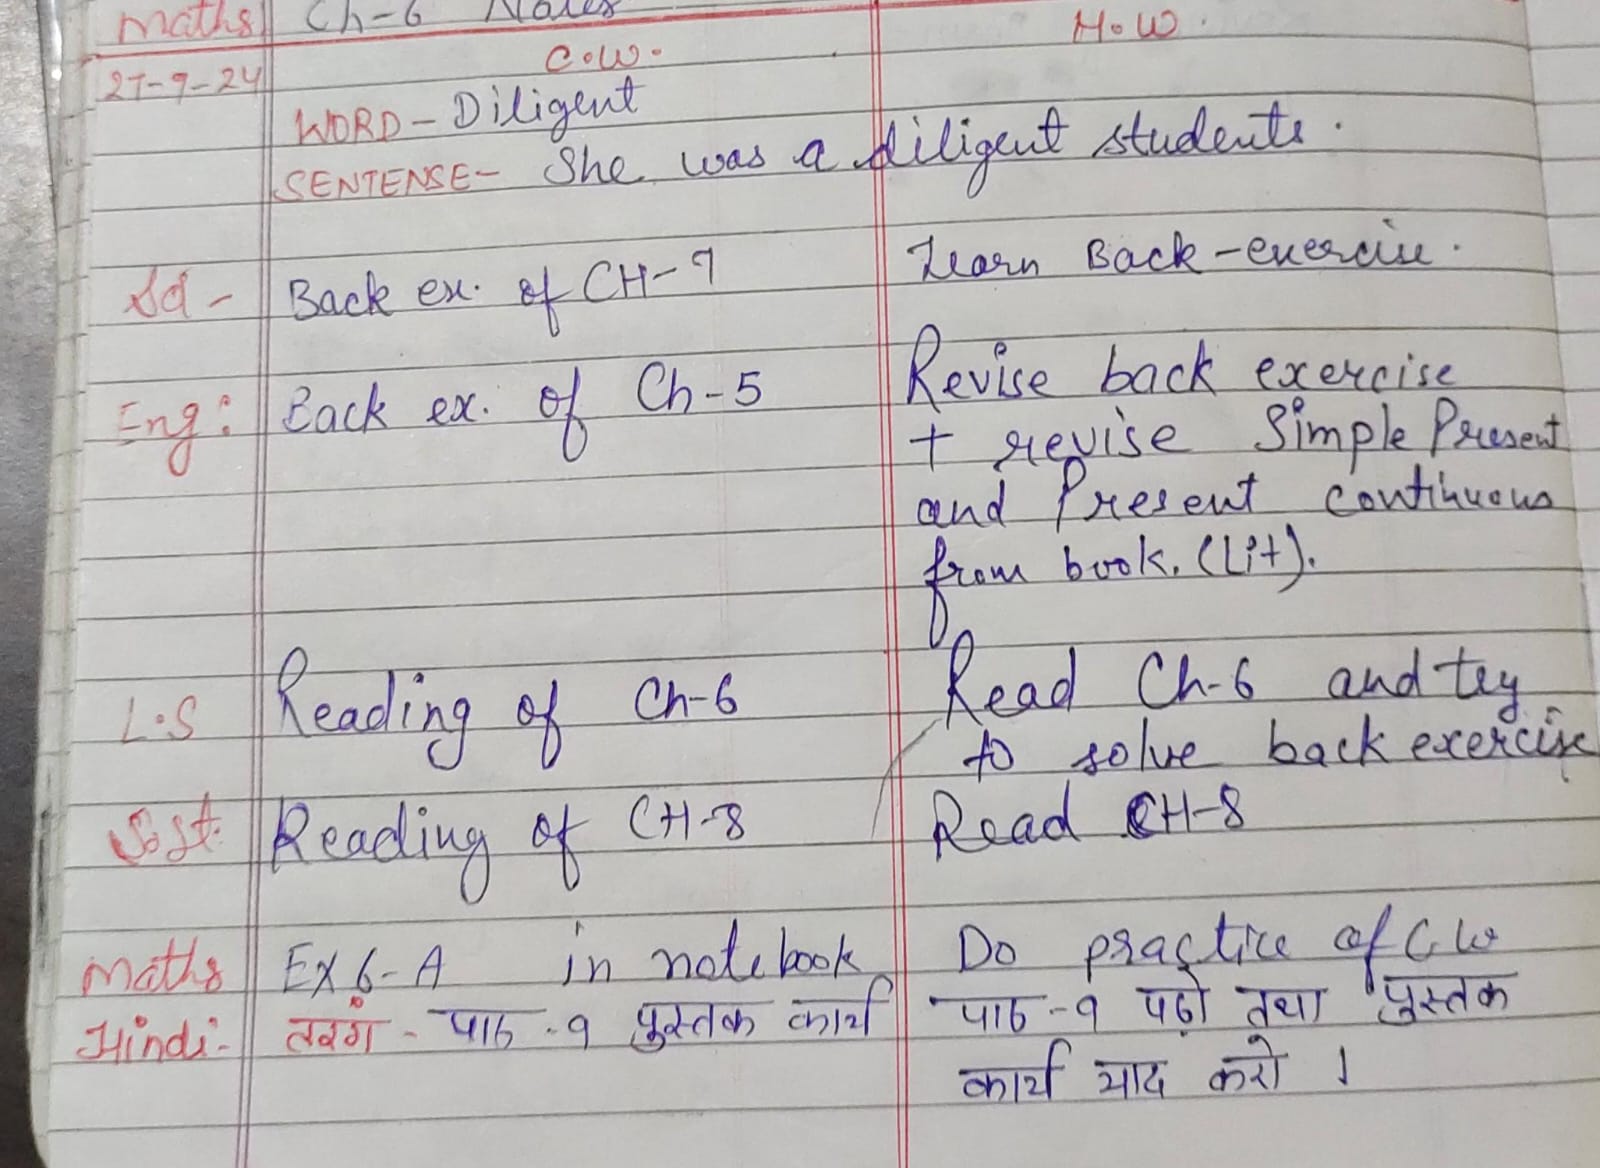 Maths Ch-6 Notes
H.W.
C.W.
27-9-24
WORD - Diligent
SENTENSE - She was a diligent students.
Sci - Back ex. of CH-7 Learn Back-exercise.
Eng: Back ex. of Ch-5 Revise back exercise
+ revise Simple Present
and Present continuous
from book. (Lit).
L.S Reading of Ch-6 Read Ch-6 and try
to solve back exercise
S.St. Reading of CH-8 Read CH-8
Maths EX 6-A in notebook Do practice of C.W
Hindi- तरंग - पाठ - ९ पुस्तक कार्य पाठ - ९ पढ़ो तथा पुस्तक
कार्य याद करो ।